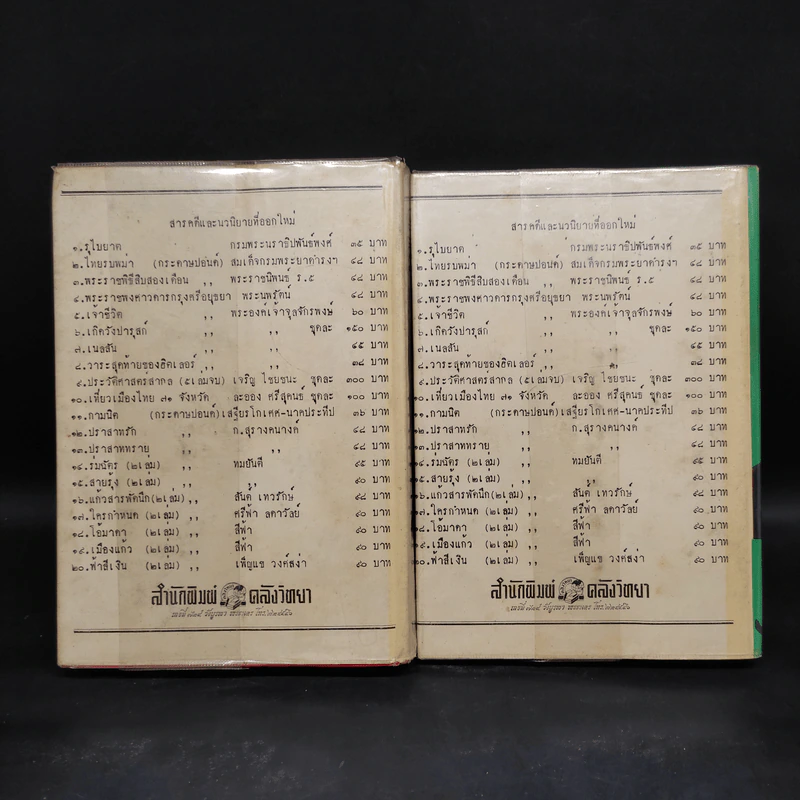 สารคดีและนวนิยายที่ออกใหม่
๑.รุไบยาต กรมพระนราธิปพันธ์พงศ์ ๓๕ บาท
๒.ไทยรบพม่า (กระดาษปอนด์) สมเด็จกรมพระยาดำรงฯ ๔๘ บาท
๓.พระราชพิธีสิบสองเดือน ,, พระราชนิพนธ์ ร.๕ ๔๘ บาท
๔.พระราชพงศาวดารกรุงศรีอยุธยา พระนพรัตน์ ๔๘ บาท
๕.เจ้าชีวิต ,, พระองค์เจ้าจุลจักรพงษ์ ๖๐ บาท
๖.เกิดวังปารุสก์ ,, ,, ชุดละ ๑๕๐ บาท
๗.เนลสัน ,, ,, ๔๕ บาท
๘.วาระสุดท้ายของฮิตเลอร์ ,, ,, ๓๘ บาท
๙.ประวัติศาสตร์สากล (๕เล่มจบ) เจริญ ไชยชนะ ชุดละ ๓๐๐ บาท
๑๐.เที่ยวเมืองไทย ๗๑ จังหวัด ละออง ศรีสุคนธ์ ชุดละ ๑๐๐ บาท
๑๑.กามนิต (กระดาษปอนด์)เสฐียรโกเศศ-นาคประทีป ๓๖ บาท
๑๒.ปราสาทรัก ,, ก.สุรางคนางค์ ๔๘ บาท
๑๓.ปราสาททราย ,, ,, ๔๘ บาท
๑๔.ร่มฉัตร (๒เล่ม) ,, ทมยันตี ๙๕ บาท
๑๕.สายรุ้ง (๒เล่ม) ,, ,, ๙๐ บาท
๑๖.แก้วสารพัดนึก(๒เล่ม) ,, สันต์ เทวรักษ์ ๙๘ บาท
๑๗.ใครกำหนด (๒เล่ม) ,, ศรีฟ้า ลดาวัลย์ ๙๐ บาท
๑๘.โอ้มาดา (๒เล่ม) ,, สีฟ้า ๙๐ บาท
๑๙.เมืองแก้ว (๒เล่ม) ,, สีฟ้า ๙๐ บาท
๒๐.ฟ้าสีเงิน (๒เล่ม) ,, เพ็ญแข วงค์สง่า ๙๐ บาท
สำนักพิมพ์ คลังวิทยา
สารคดีและนวนิยายที่ออกใหม่
๑.รุไบยาต กรมพระนราธิปพันธ์พงศ์ ๓๕ บาท
๒.ไทยรบพม่า (กระดาษปอนด์) สมเด็จกรมพระยาดำรงฯ ๔๘ บาท
๓.พระราชพิธีสิบสองเดือน ,, พระราชนิพนธ์ ร.๕ ๔๘ บาท
๔.พระราชพงศาวดารกรุงศรีอยุธยา พระนพรัตน์ ๔๘ บาท
๕.เจ้าชีวิต ,, พระองค์เจ้าจุลจักรพงษ์ ๖๐ บาท
๖.เกิดวังปารุสก์ ,, ,, ชุดละ ๑๕๐ บาท
๗.เนลสัน ,, ,, ๔๕ บาท
๘.วาระสุดท้ายของฮิตเลอร์ ,, ,, ๓๘ บาท
๙.ประวัติศาสตร์สากล (๕เล่มจบ) เจริญ ไชยชนะ ชุดละ ๓๐๐ บาท
๑๐.เที่ยวเมืองไทย ๗๑ จังหวัด ละออง ศรีสุคนธ์ ชุดละ ๑๐๐ บาท
๑๑.กามนิต (กระดาษปอนด์)เสฐียรโกเศศ-นาคประทีป ๓๖ บาท
๑๒.ปราสาทรัก ,, ก.สุรางคนางค์ ๔๘ บาท
๑๓.ปราสาททราย ,, ,, ๔๘ บาท
๑๔.ร่มฉัตร (๒เล่ม) ,, ทมยันตี ๙๕ บาท
๑๕.สายรุ้ง (๒เล่ม) ,, ๙๐ บาท
๑๖.แก้วสารพัดนึก(๒เล่ม) ,, สันต์ เทวรักษ์ ๙๘ บาท
๑๗.ใครกำหนด (๒เล่ม) ,, ศรีฟ้า ลดาวัลย์ ๙๐ บาท
๑๘.โอ้มาดา (๒เล่ม) ,, สีฟ้า ๙๐ บาท
๑๙.เมืองแก้ว (๒เล่ม) ,, สีฟ้า ๙๐ บาท
๒๐.ฟ้าสีเงิน (๒เล่ม) ,, เพ็ญแข วงค์สง่า ๙๐ บาท
สำนักพิมพ์ คลังวิทยา